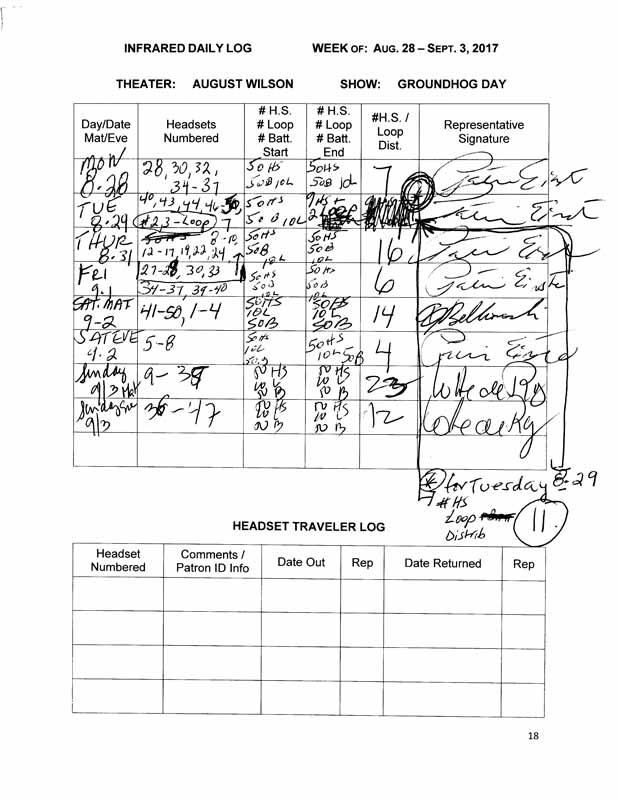 INFRARED DAILY LOG WEEK OF: AUG. 28 – SEPT. 3, 2017
THEATER: AUGUST WILSON SHOW: GROUNDHOG DAY
Day/Date Mat/Eve
Headsets Numbered
# H.S. # Loop # Batt. Start
# H.S. # Loop # Batt. End
#H.S. / Loop Dist.
Representative Signature
MON 8-28
28, 30, 32, 34-37
50HS 50B 10L
50HS 50B 10L
7
TUE 8.29
40, 43, 44, 46-50, #23-Loop 7
50HS 50B 10L
THUR 8.31
8-10, 12-17, 19, 22, 24
50HS 50B 10L
50HS 50B 10L
16
FRI 9.1
27-28, 30, 33 34-37, 39-40
50HS 50B 10L
50HS 50B 10L
6
SAT. MAT 9-2
41-50, 1-4
50HS 10L 50B
50HS 10L 50B
14
SAT EVE 9.2
5-8
50HS 10L 50B
50HS 10L 50B
4
Sunday 9/3 Mat
9-35
50 HS 10 L 50 B
50 HS 10 L 50 B
23
Sunday Eve 9/3
36-47
50 HS 10 L 50 B
50 HS 10 L 50 B
12
* for Tuesday 8-29
# HS
Loop
Distrib
11
HEADSET TRAVELER LOG
Headset Numbered
Comments / Patron ID Info
Date Out
Rep
Date Returned
Rep
18